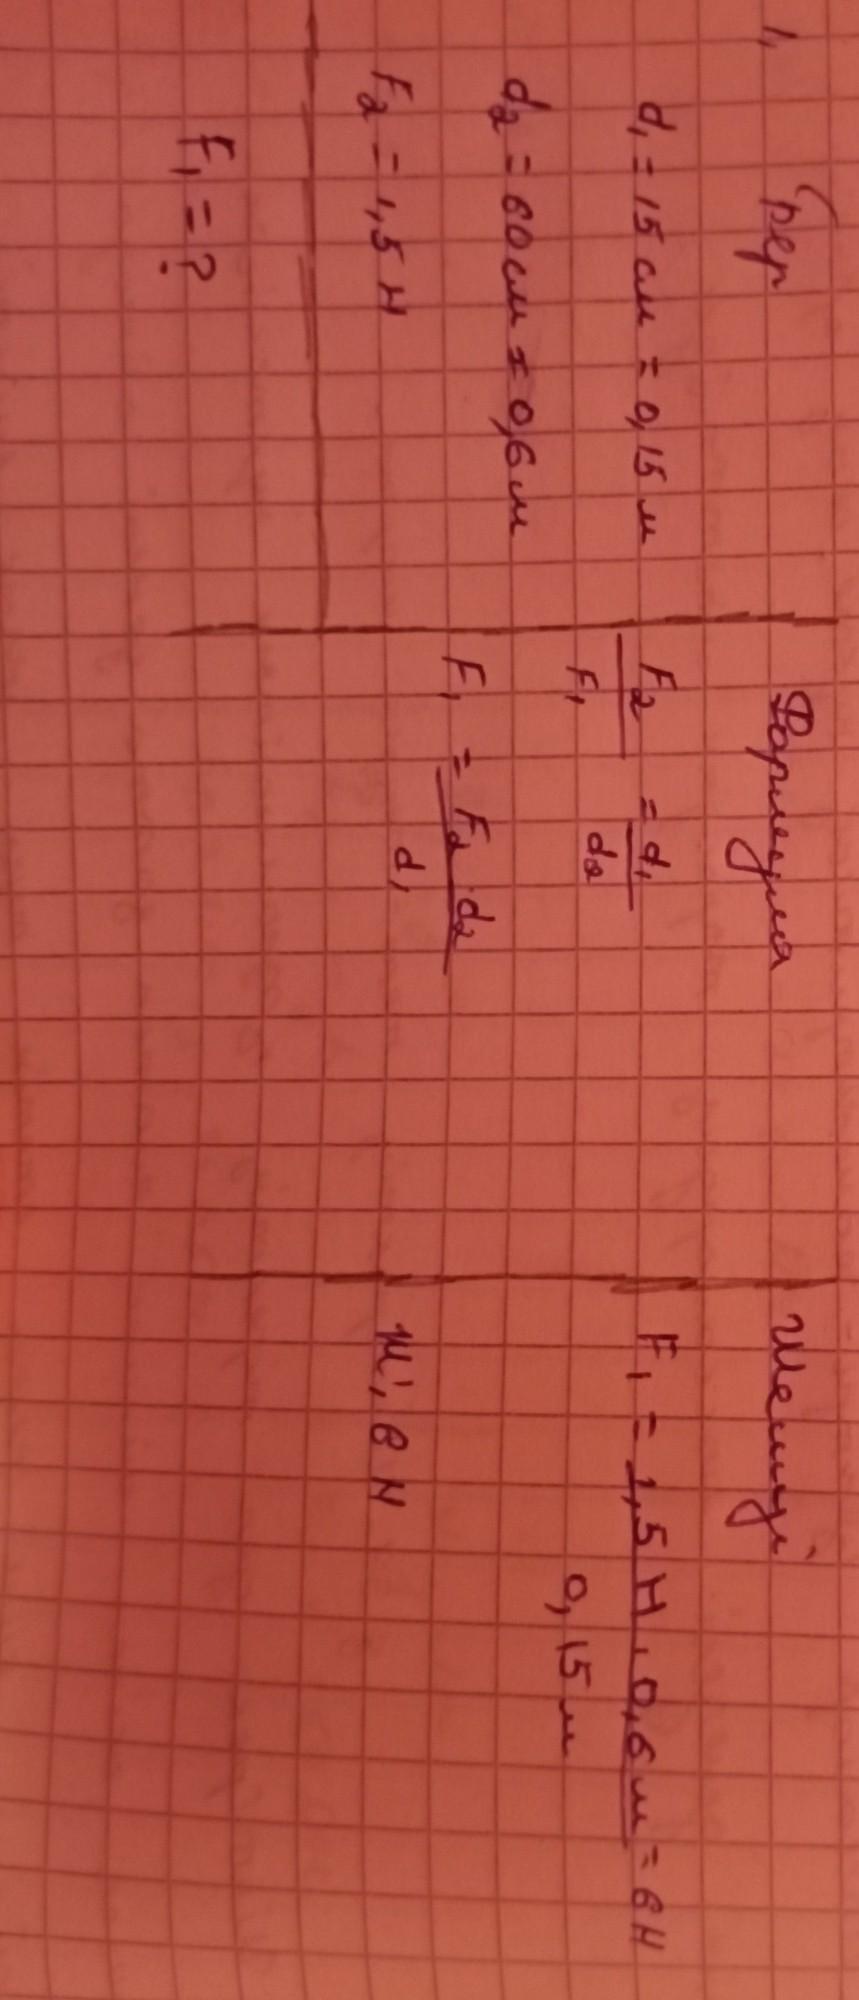 1, Бер
d₁ = 15 см = 0,15 м
d₂ = 60 см = 0,6 м
F₂ = 1,5 Н
F₁ = ?
Формула
F₂/F₁ = d₁/d₂
F₁ = F₂·d₂/d₁
Шешуі
F₁ = 1,5 Н · 0,6 м/0,15 м = 6 Н
Ж; 6 Н